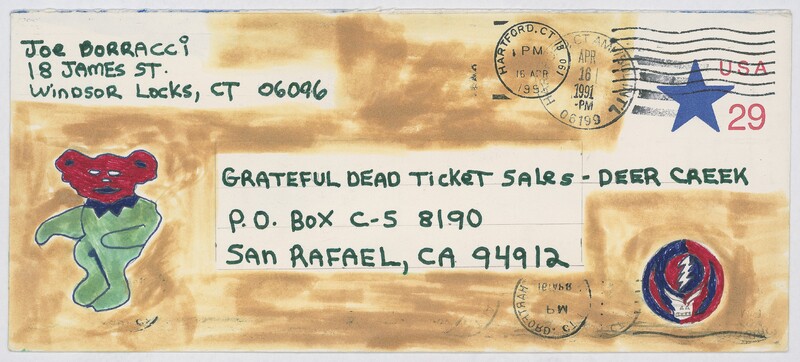 Joe Borracci
18 James St.
Windsor Locks, CT 06096
HARTFORD, CT 061
PM
16 APR
199
APR
16
1991
-PM
06199
USA
29
Grateful Dead Ticket Sales - Deer Creek
P.O. Box C-S 8190
San Rafael, CA 94912
HARTFORD, CT
16 APR
PM